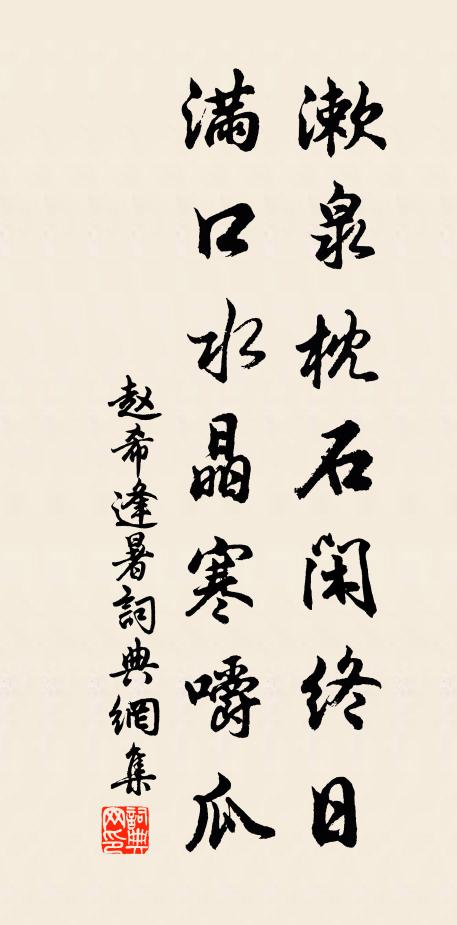 漱泉枕石闲终日
满口水晶寒嚼瓜
赵希逢暑詞典網集
詞典网印